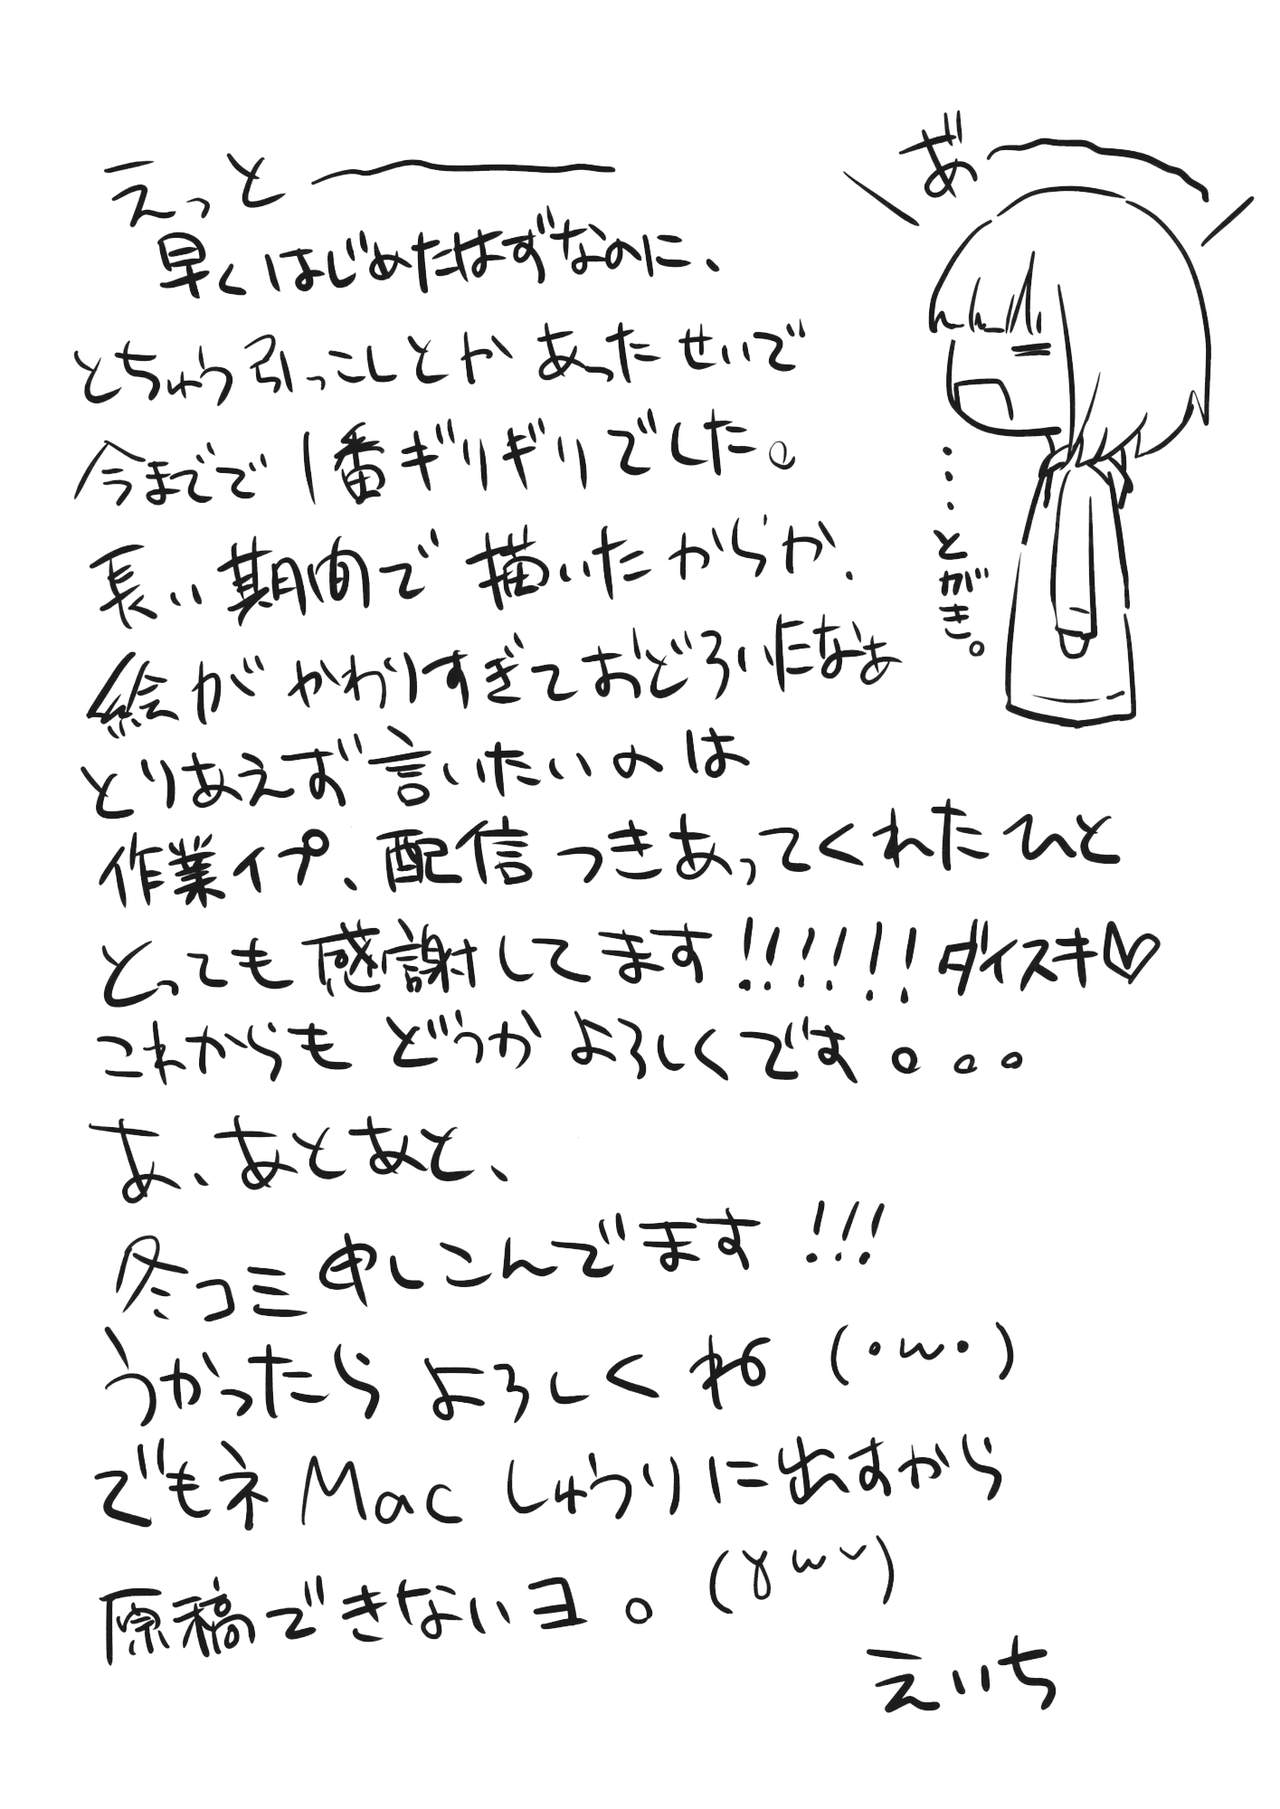 あ゛
…とがき。
えっと――
早くはじめたはずなのに、
とちゅう引っこしとかあったせいで
今までで1番ギリギリでした。
長い期間で描いたからか、
絵がかわりすぎておどろいたなぁ
とりあえず言いたいのは
作業イプ、配信つきあってくれたひと
とっても感謝してます!!!!!!ダイスキ♡
これからもどうかよろしくです。。。
あ、あとあと、
冬コミ申しこんでます!!!
うかったらよろしくね(・ω・)
でもネMacしゅうりに出すから
原稿できないヨ。(γω˘)
えいち